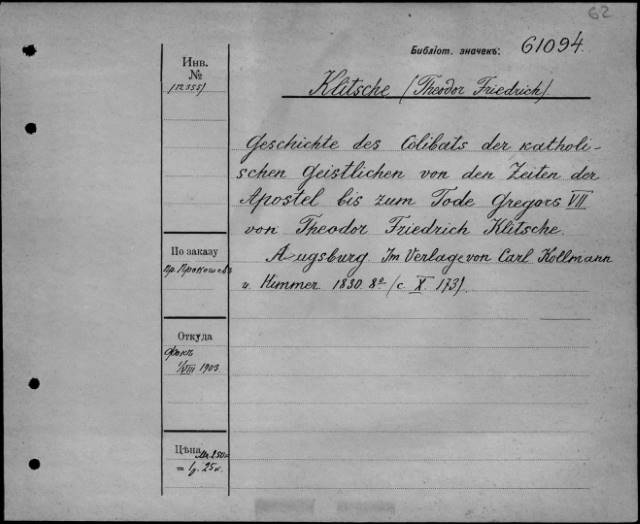 62
Библіот. значекъ: 61094.
Инв.
№
Klitsche (Theodor Friedrich).
Geschichte des Cölibats der katholi-
schen Geistlichen von den Zeiten der
Apostel bis zum Tode Gregors VII
von Theodor Friedrich Klitsche.
Augsburg. Im Verlage von Carl Kollmann
u. Himmer 1830. 8° (с. X. 173).
По заказу
Откуда
VIII 1903
Цѣна